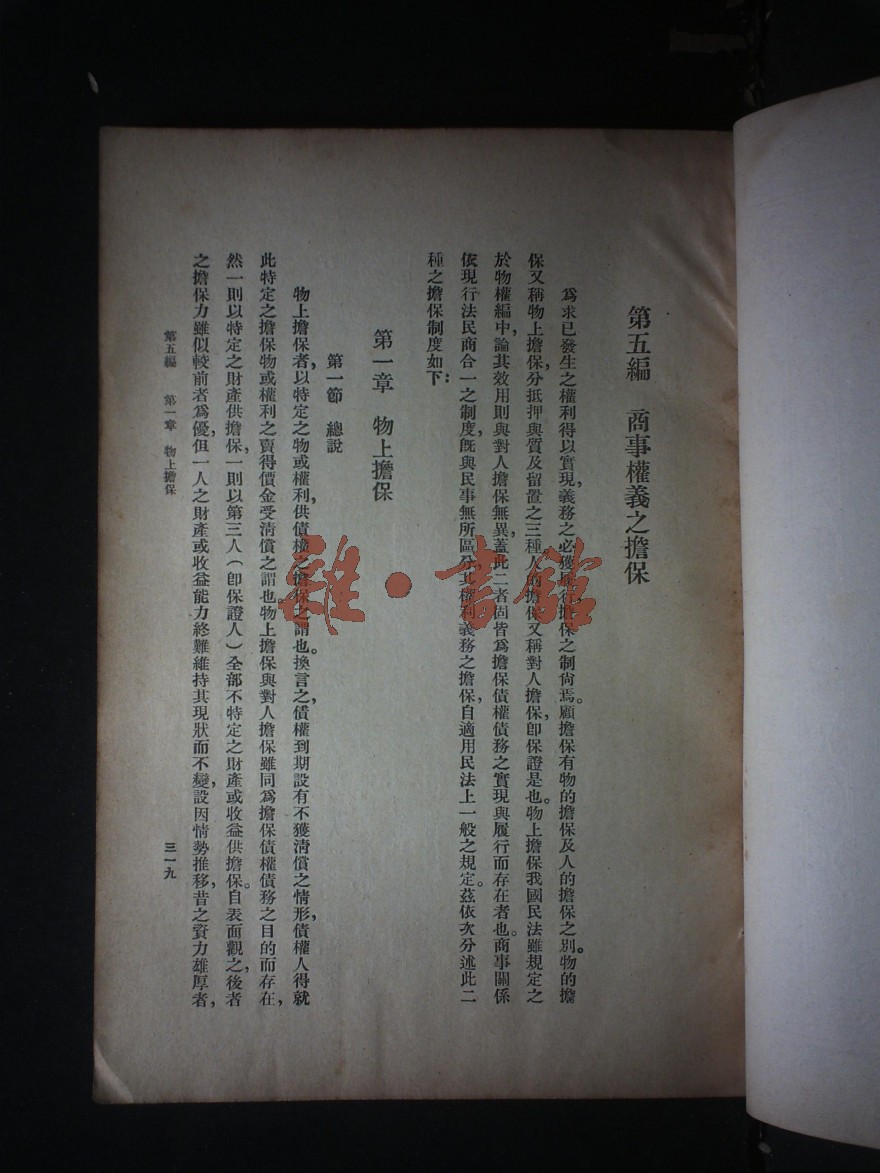 第五編　商事權義之擔保
爲求已發生之權利得以實現，義務之必獲履行，擔保之制尙焉。顧擔保有物的擔保及人的擔保之別。物的擔
保又稱物上擔保，分抵押與質及留置之三種。人的擔保又稱對人擔保，卽保證是也。物上擔保，我國民法雖規定之
於物權編中，論其效用則與對人擔保無異，蓋此二者固皆爲擔保債權債務之實現與履行而存在者也。商事關係
依現行法民商合一之制度，旣與民事無所區分，其權利義務之擔保，自適用民法上一般之規定。茲依次分述此二
種之擔保制度如下：
第一章　物上擔保
第一節　總說
物上擔保者，以特定之物或權利，供債權之擔保之謂也。換言之，債權到期設有不獲淸償之情形，債權人得就
此特定之擔保物或權利之賣得價金受淸償之謂也。物上擔保與對人擔保雖同爲擔保債權債務之目的而存在，
然一則以特定之財產供擔保，一則以第三人（卽保證人）全部不特定之財產或收益供擔保。自表面觀之，後者
之擔保力雖似較前者爲優，但一人之財產或收益能力終難維持其現狀而不變，設因情勢推移，昔之資力雄厚者，
第五編　第一章　物上擔保
三一九
雜·書館